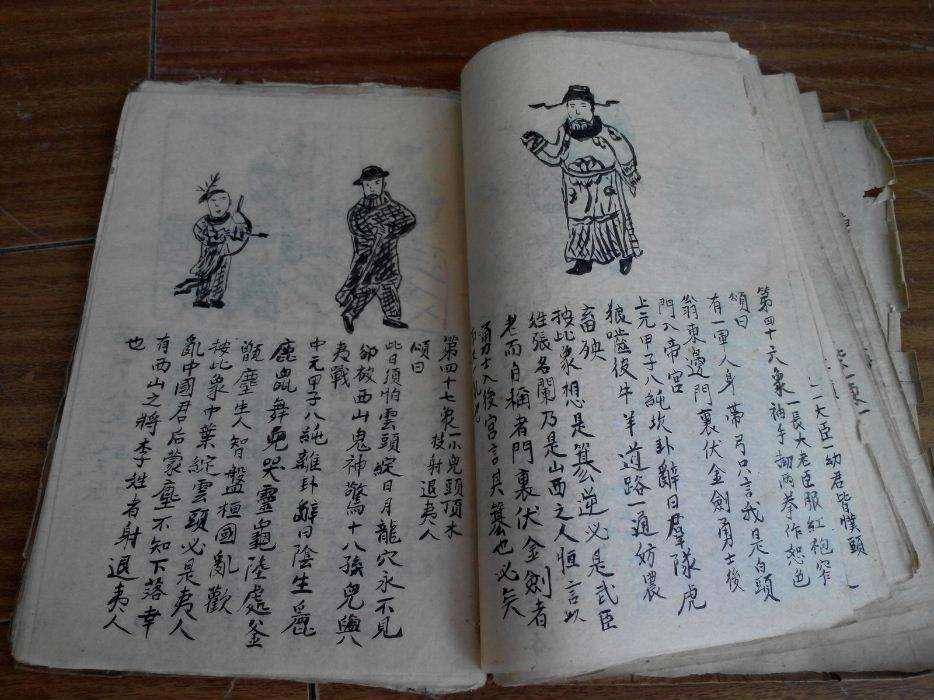 一二大臣一幼君皆幞頭
一長大老臣服紅袍窄
第四十六象袖手 兩拳作怒色
頌曰
有一軍人身帶弓只言我是白頭
翁東邊門裏伏金劍勇士後
門入帝宮
上元甲子八純坎卦辭曰羣隊虎
狼啮彼牛羊道路一通妨農
畜殃
按此象想是篡逆必是武臣
姓張名闌乃是山西之人恒言以
老而自稱者門裏伏金劍者
勇士入後宮言其篡也必矣
第四十七象一小兒頭頂木
枝射退夷人
頌曰
此日須怕雲頭綻日月龍穴永不見
卻被西山鬼神驚十八孫兒興
夷戰
中元甲子八純離卦辭曰陰生
鹿鼠舞 哭靈龜陸處釜
甑塵生人智盤桓國亂歡
按比象中葉綻雲頭必是夷人
亂中國君后蒙塵不知下落幸
有西山之將李姓者射退夷人
也